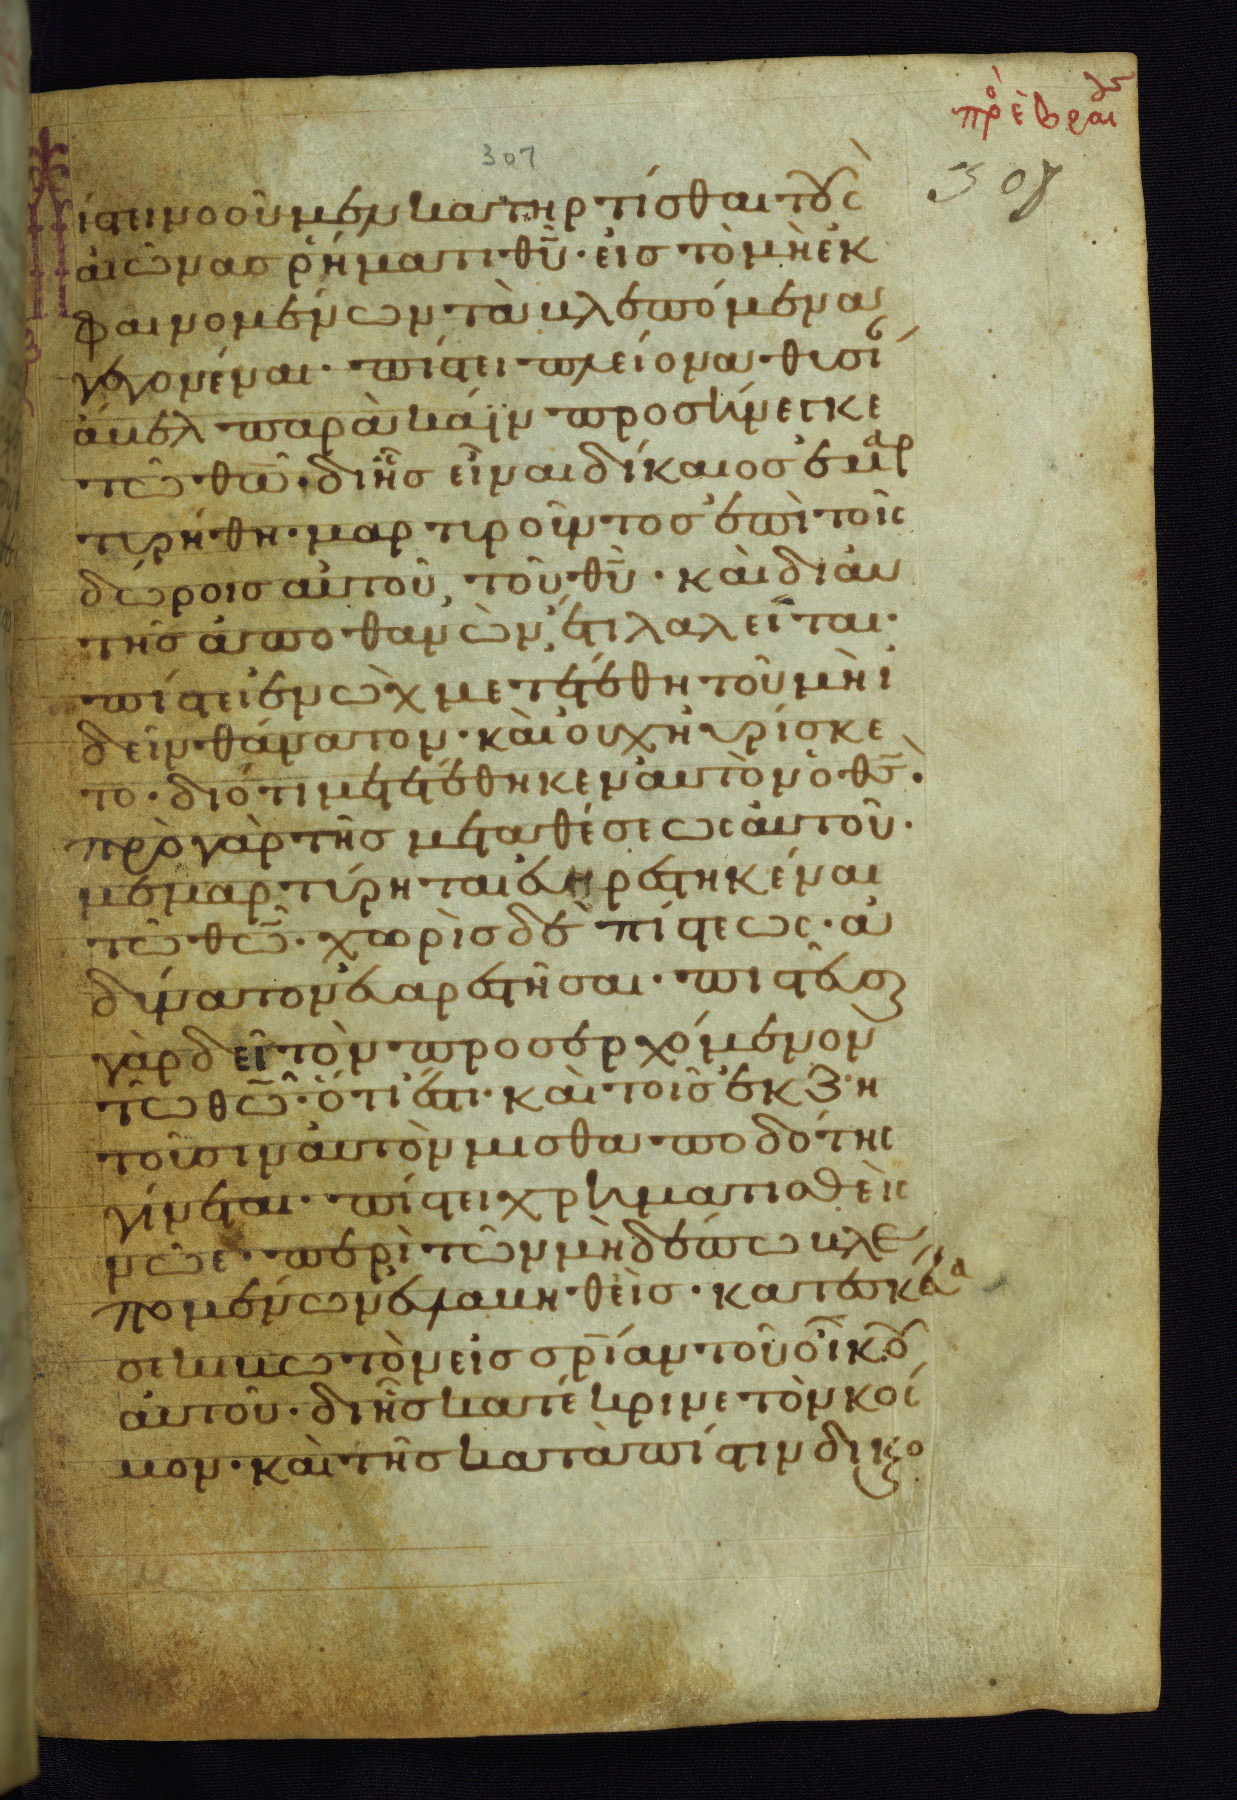 πρὸ ἑβραί
307
308
ίστει νοοῦμεν κατηρτίσθαι τοὺς
αἰῶνας ῥήματι θῦ· εἰς τὸ μὴ ἐκ
φαινομένων τὰ βλεπόμενα
γεγονέναι· πίστει πλείονα θυσί
ἄβελ παρὰ κάϊν προσήνεγκε
τῶ θῶ· δι ἧς εἶναι δίκαιος ἐμαρ
τυρήθη· μαρτυροῦντος ἐπὶ τοῖς
δώροις αὐτοῦ, τοῦ θῦ· καὶ δι αὐ
τῆς ἀποθανὼν, ἔτι λαλεῖται·
πίστει ἐνὼχ μετετέθη τοῦ μὴ ἰ
δεῖν θάνατον· καὶ οὐχ ηὑρίσκε
το· διότι μετετέθηκεν αὐτὸν ὁ θς·
πρὸ γὰρ τῆς μεταθέσεως αὐτοῦ·
μεμαρτύρηται εὐηρεστηκέναι
τῶ θῶ· χωρὶς δὲ πίστεως· ἀ
δύνατον εὐαρεστῆσαι· πιστεῦσαι
γὰρ δεῖ τὸν προσερχόμενον
τῶ θῶ· ὅτι ἔστι· καὶ τοῖς ἐκζη
τοῦσιν αὐτὸν μισθαποδότης
γίνεται· πίστει χρηματισθεὶς
νῶε· περὶ τῶν μηδέπω βλε
πομένων εὐλαβηθεὶς· κατεσκεύα
σε κιβωτὸν εἰς σρίαν τοῦ οἴκου
αὐτοῦ· δι ἧς κατέκρινε τὸν κόσ
μον· καὶ τῆς κατὰ πίστιν δικαιο